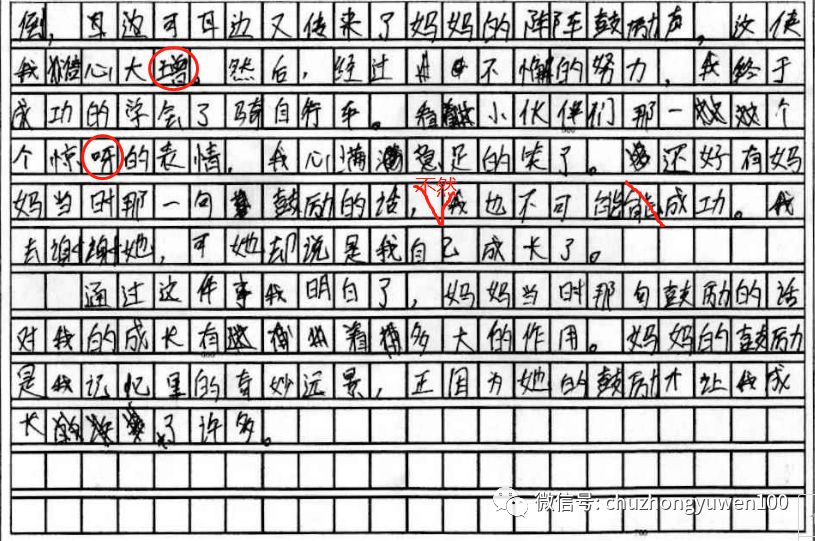 倒，耳边可耳边又传来了妈妈的阵阵鼓励声。这使
我信心大增。然后，经过不懈的努力，我终于
成功的学会了骑自行车。看小伙伴们那一个
个惊呀的表情，我心满意足的笑了。还好有妈
妈当时那一句鼓励的话，我也不可能成功。我
不然
去谢谢她，可她却说是我自己成长了。
通过这件事我明白了，妈妈当时那句鼓励的话
对我的成长有着多大的作用。妈妈的鼓励
是我记忆里的奇妙远景，正因为她的鼓励才让我成
长了许多。
微信号: chuzhongyuwen100